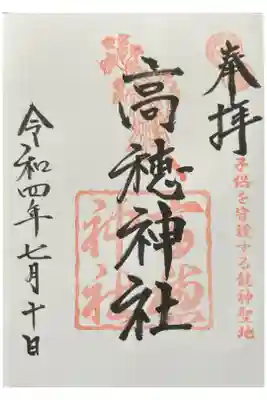 奉拝
子供を 護する龍神聖地
高穂神社
高穂
神社
令和四年七月十日